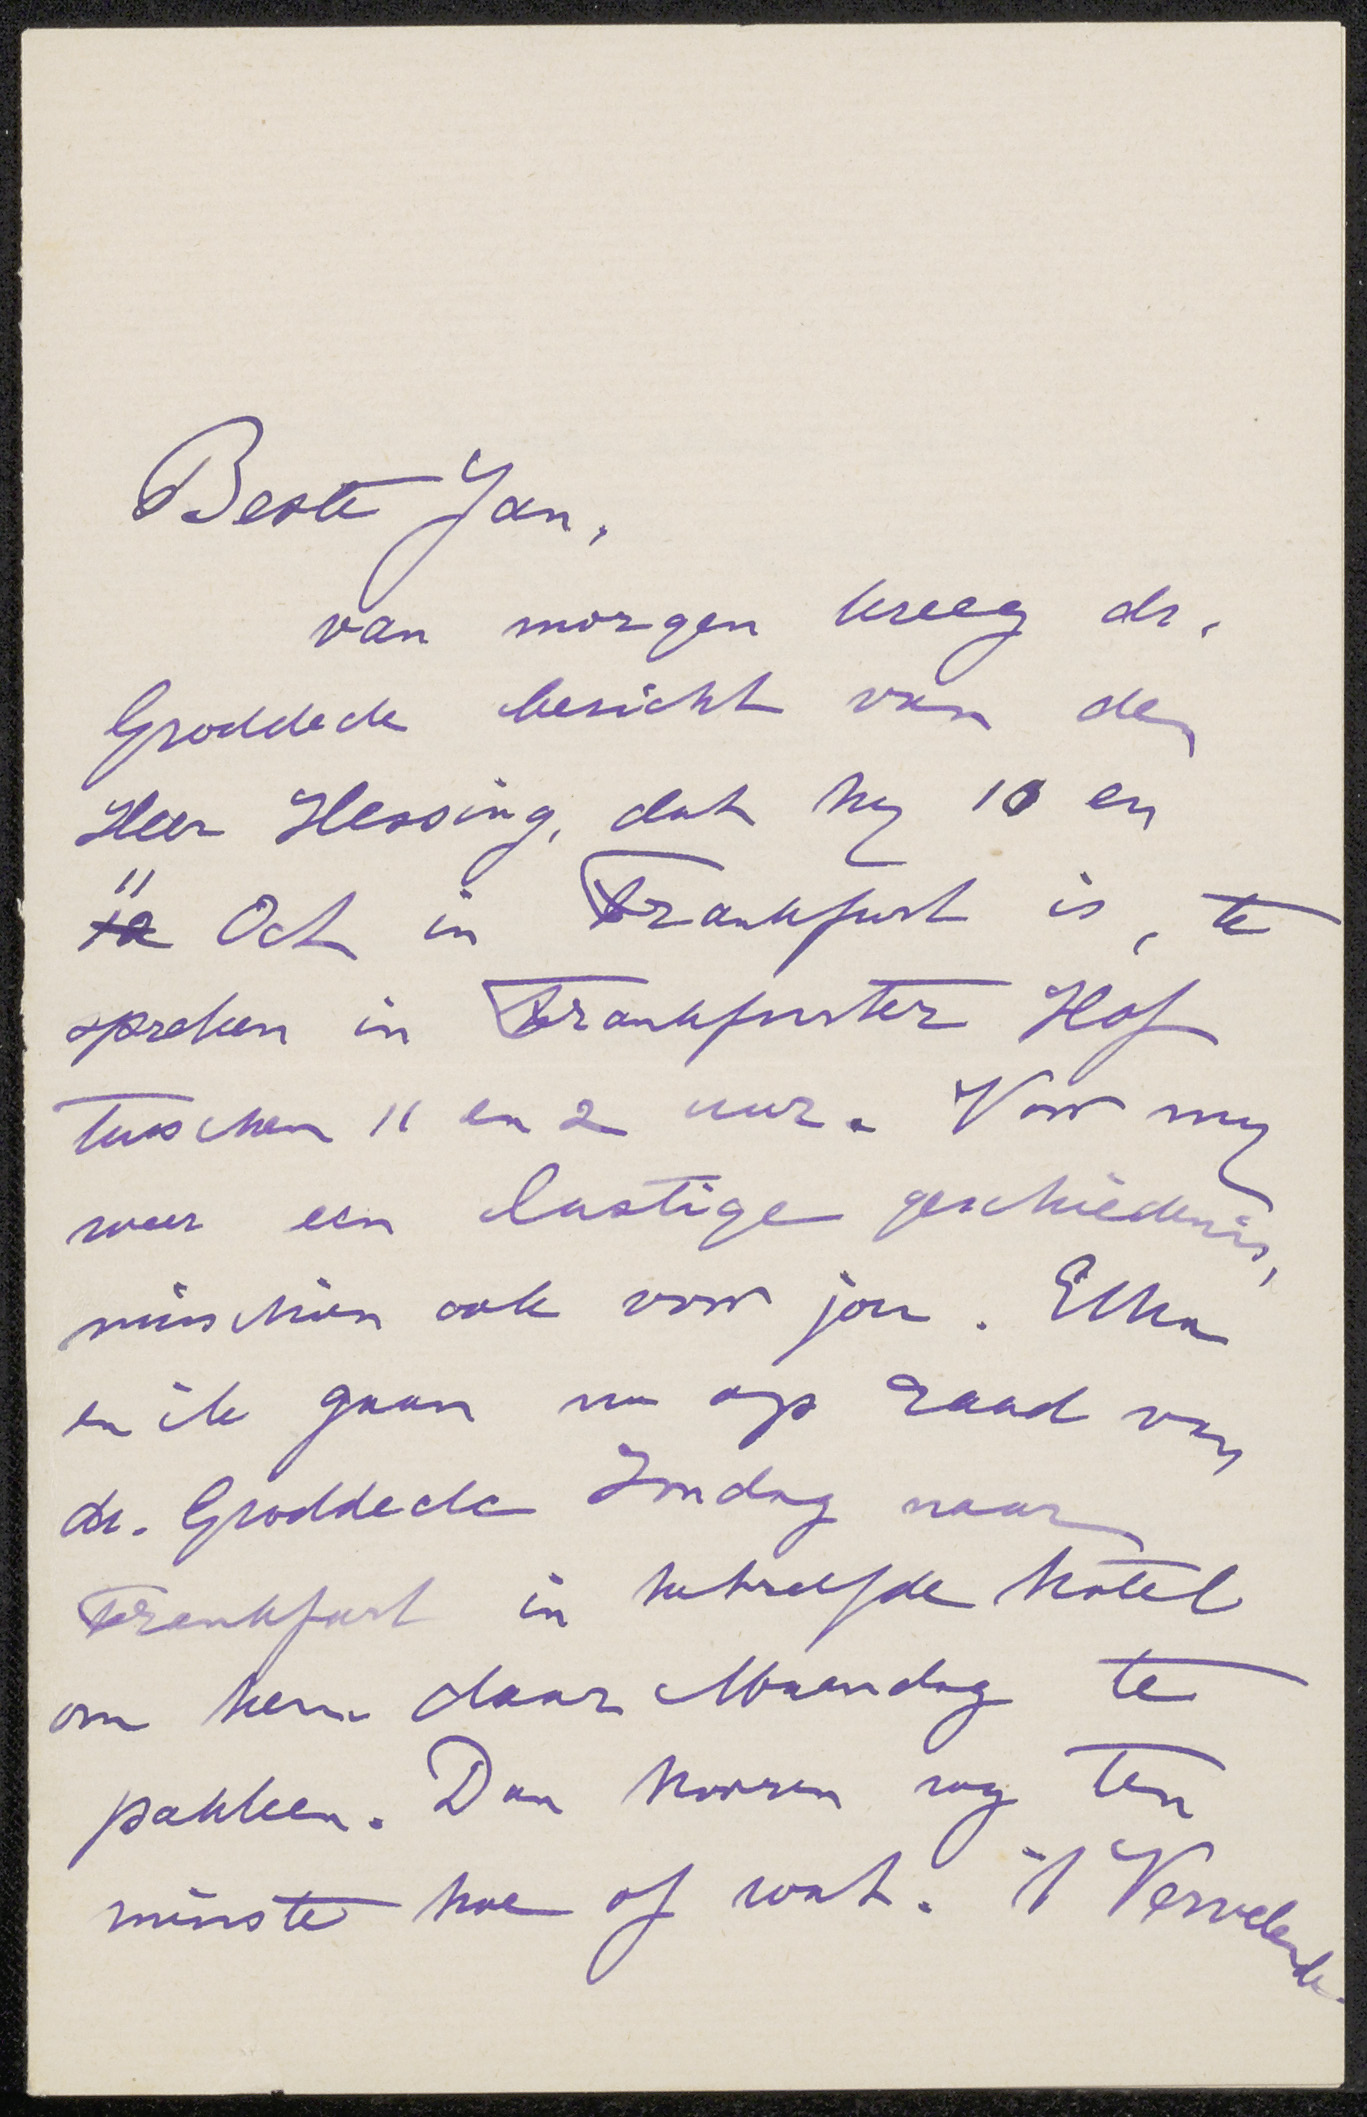 Beste Jan,
van morgen kreeg dr.
Groddeck bericht van den
Heer Hessing, dat hy 10 en
11 Oct in Frankfurt is, te
spreken in Frankfurter Hof
tusschen 11 en 2 uur. Voor my
weer een lastige geschiedenis,
misschien ook voor jou. Elka
en ik gaan nu op raad van
dr. Groddeck Zondag naar
Frankfurt in hetzelfde hotel
om hem daar Maandag te
pakken. Dan hooren wy ten
minste hoe of wat. 't Vervelende